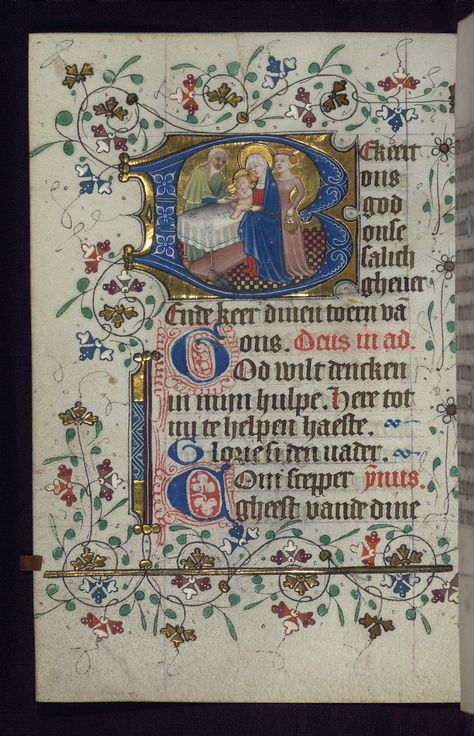 BEkeert
ons
god
onse
salich
gheuer
Ende keer dinen toern vā
ons. Deus in ad.
GOd wilt dencken
in mijn hulpe. Here tot
mi te helpen haeste.
Glorie si den uader.
COm scepper ymus.
gheest vande dine